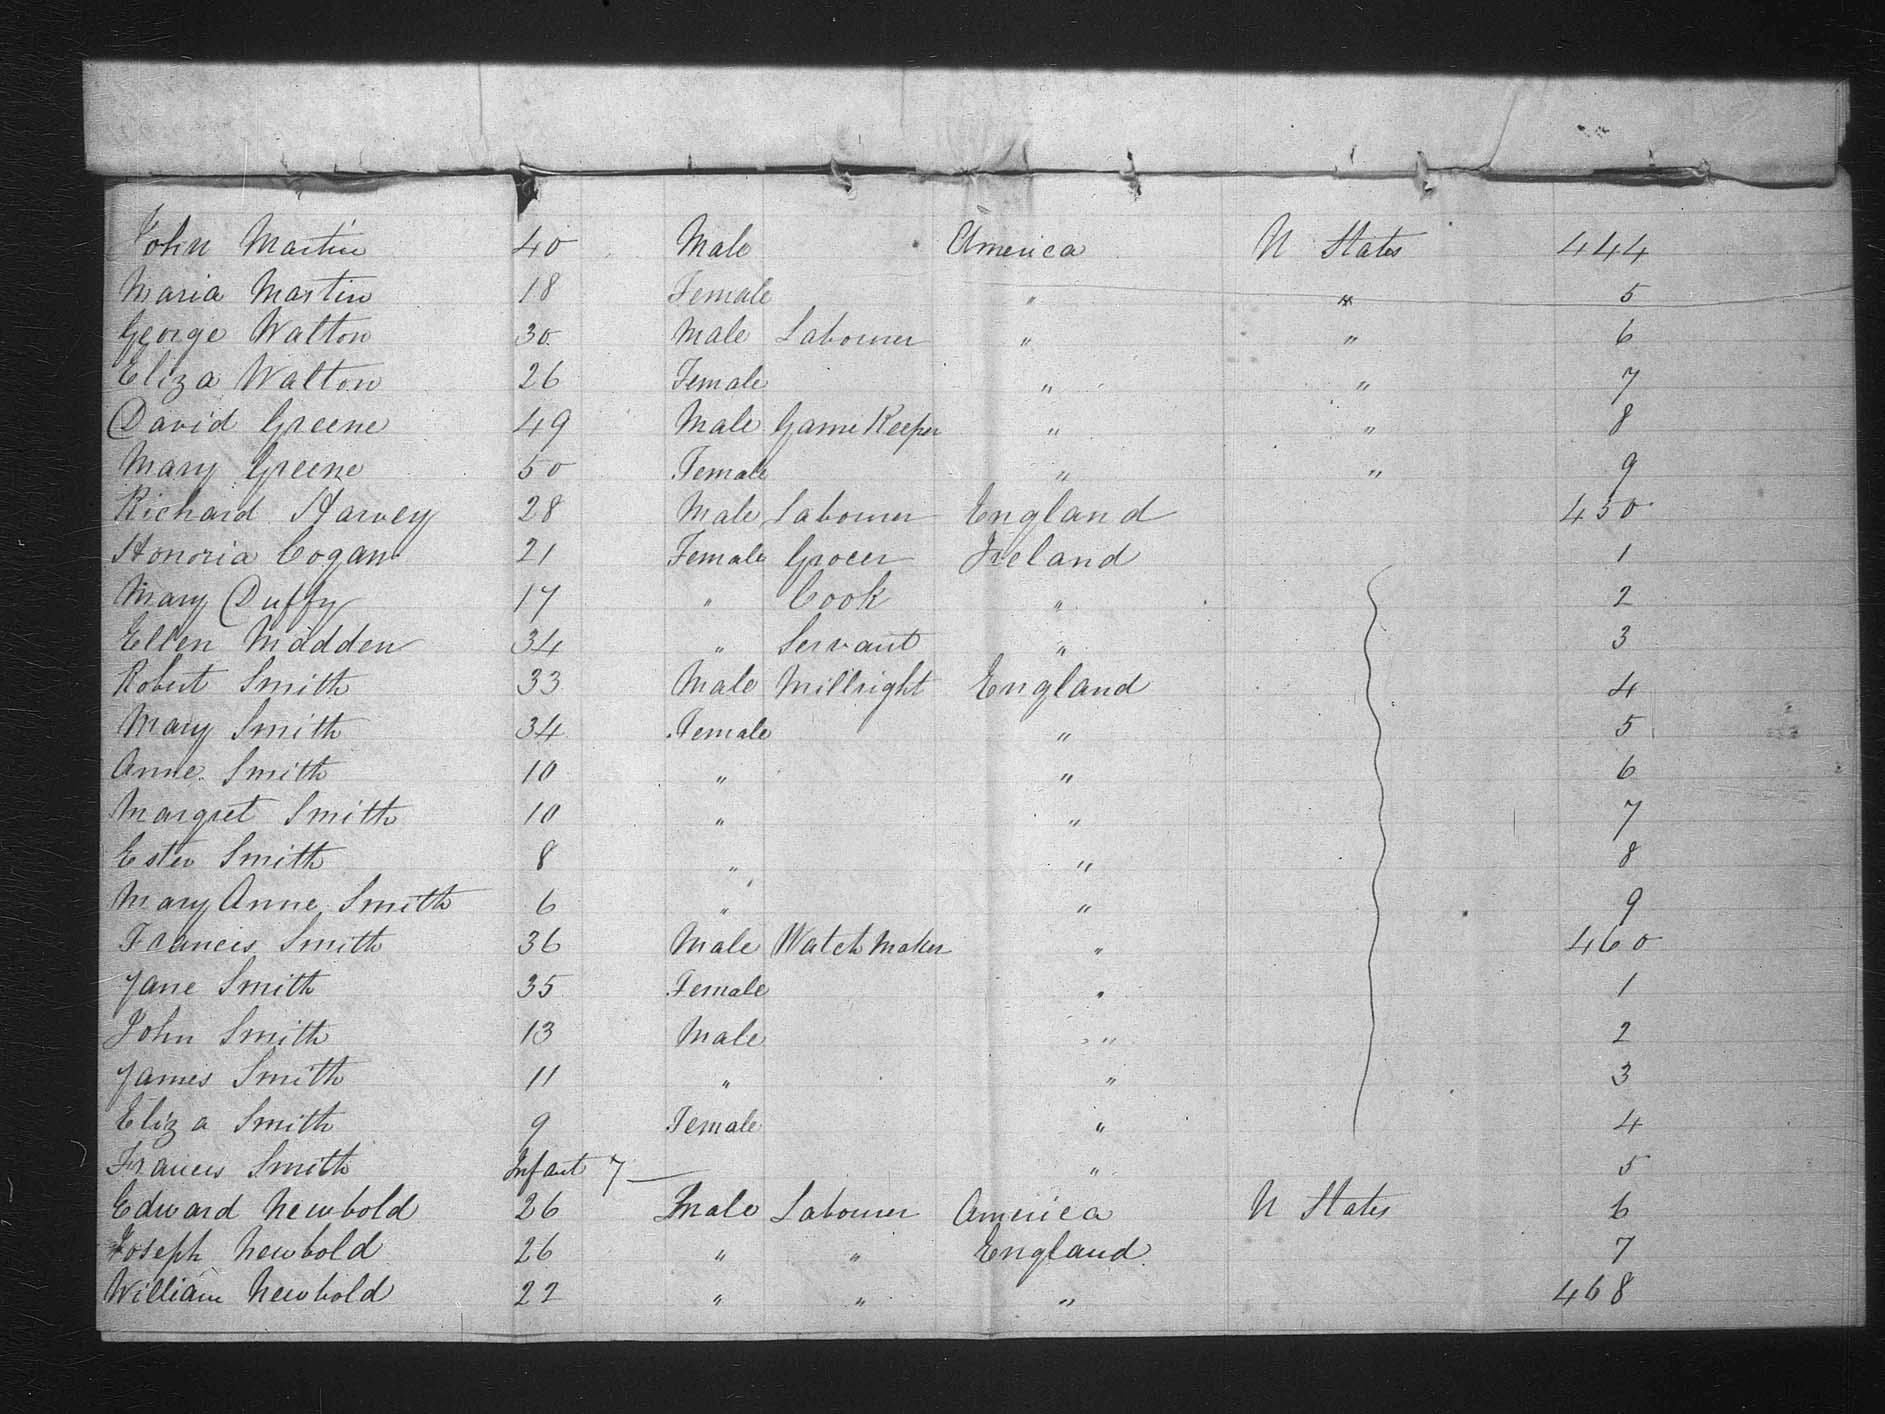 John Martin 40 Male America U States 444
Maria Martin 18 Female " " 5
George Walton 30 Male Labourer " " 6
Eliza Walton 26 Female " " 7
David Greene 49 Male Game Keeper " " 8
Mary Greene 50 Female " " 9
Richard Harvey 28 Male Labourer England 450
Honoria Cogan 21 Female Grocer Ireland 1
Mary Duffy 17 " Cook " 2
Ellen Madden 34 " Servant " 3
Robert Smith 33 Male Millright England 4
Mary Smith 34 Female " 5
Anne Smith 10 " " 6
Margret Smith 10 " " 7
Ester Smith 8 " " 8
Mary Anne Smith 6 " " 9
Francis Smith 36 Male Watch Maker " 460
Jane Smith 35 Female " 1
John Smith 13 Male " 2
James Smith 11 " " 3
Eliza Smith 9 Female " 4
Frances Smith Infant 7 — " 5
Edward Newbold 26 Male Labourer America U States 6
Joseph Newbold 26 " " England 7
William Newbold 22 " " " 468